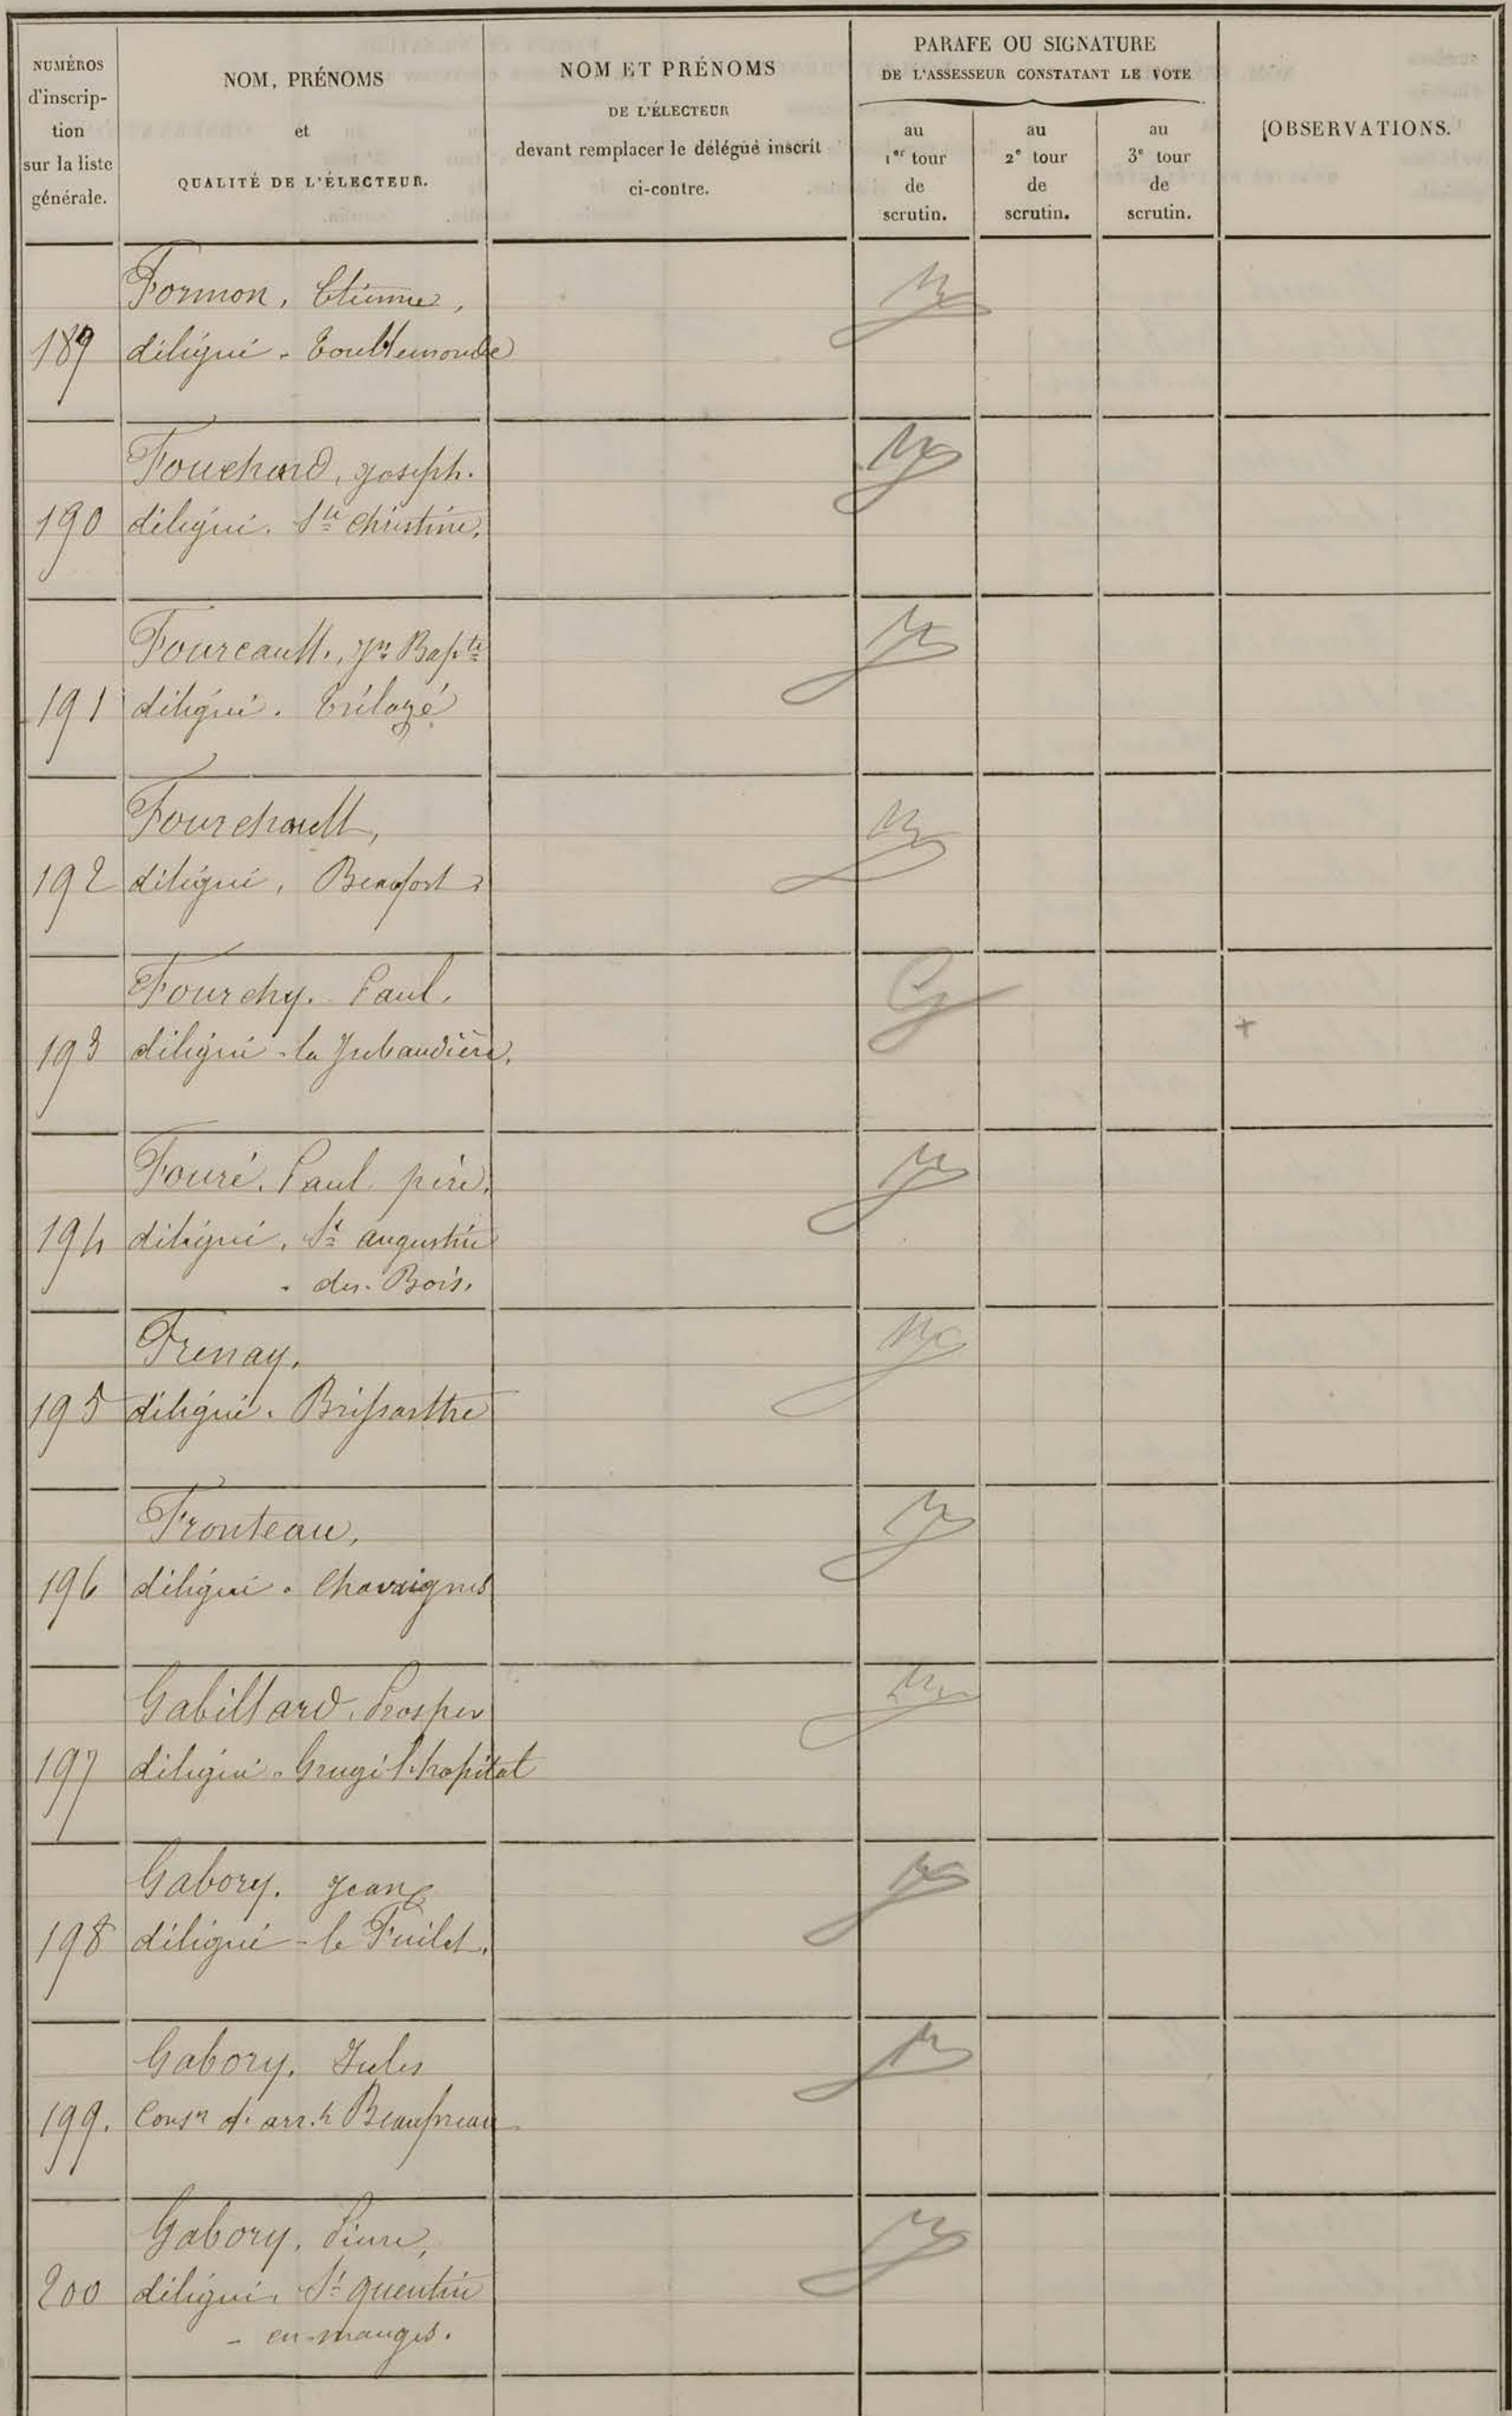 NUMÉROS
d'inscrip-
tion
sur la liste
générale.
NOM, PRÉNOMS
et
QUALITÉ DE L'ÉLECTEUR.
NOM ET PRÉNOMS
DE L'ÉLECTEUR
devant remplacer le délégué inscrit
ci-contre.
PARAFE OU SIGNATURE
DE L'ASSESSEUR CONSTATANT LE VOTE
au
1er tour
de
scrutin.
au
2e tour
de
scrutin.
au
3e tour
de
scrutin.
OBSERVATIONS.
Formon, Etienne,
189 délégué - Touttemonde
Fouchard, Joseph.
190 délégué. Ste Christine.
Fourcault, Jn Bapte
191 délégué. Trélazé
Fourchault,
192 délégué, Beaufort
Fourchy. Paul.
193 délégué - la Jubaudière. +
Fouré. Paul père.
194 délégué, St Augustin
- des - Bois.
Frenay.
195 délégué. Brissarthe
Fronteau,
196 délégué. Chavaignes
Gabillard, Prosper
197 délégué - Grugé l'hopital
Gabory. Jean
198 délégué - le Fuilet.
Gabory. Jules
199. Consr d'arr.t Beaupreau
Gabory, Pierre,
200 délégué. St Quentin
- en - mauges.